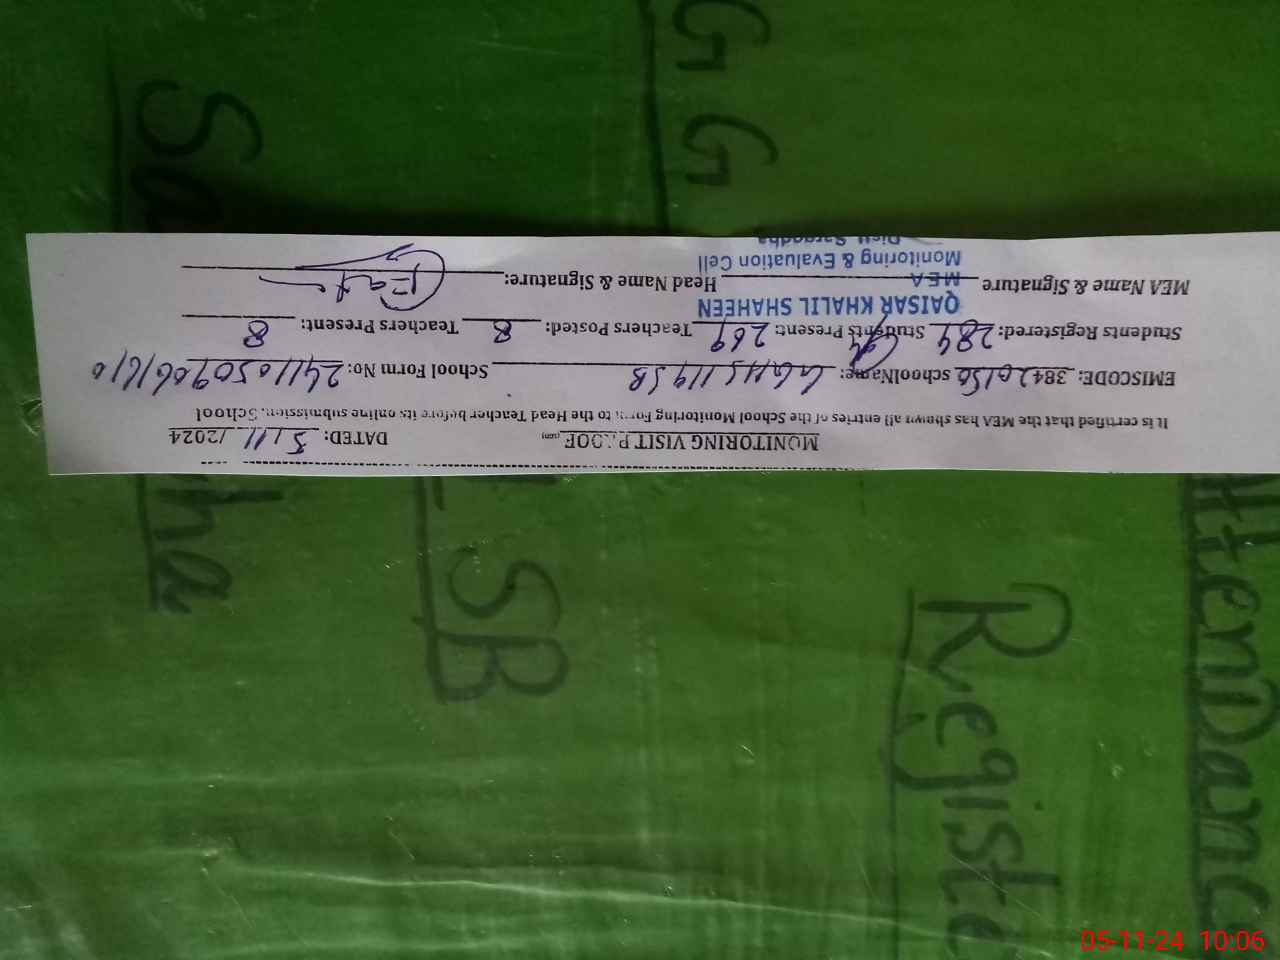 MONITORING VISIT PROOF DATED: 5/11/2024
It is certified that the MEA has shown all entries of the School Monitoring Form to the Head Teacher before its online submission. School
EMISCODE: 38420150 schoolName: GGHS 119 SB School Form No:
Students Registered: 284 Students Present: 269 Teachers Posted: 8 Teachers Present: 8
QAISAR KHALIL SHAHEEN
MEA Name & Signature MEA Head Name & Signature:
Monitoring & Evaluation Cell
Distt Sargodha
GG
SB
Attendanc
Registe
05-11-24 10:06